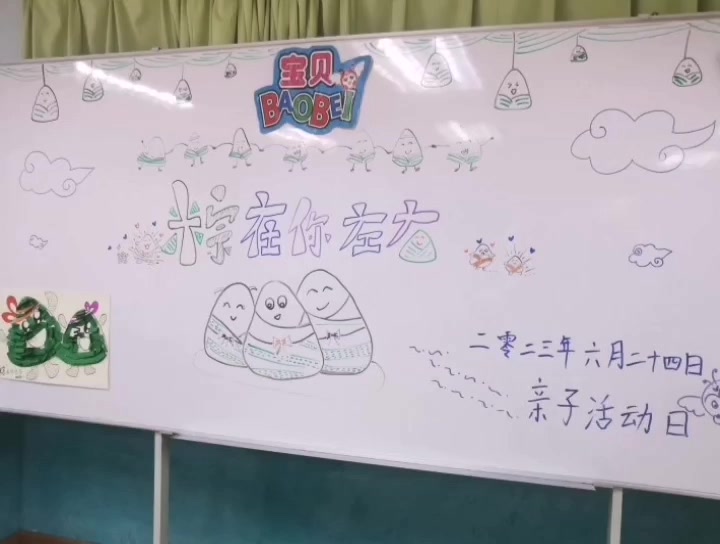 宝贝
BAOBEI
粽在你左右
二零二三年六月二十四日
亲子活动日